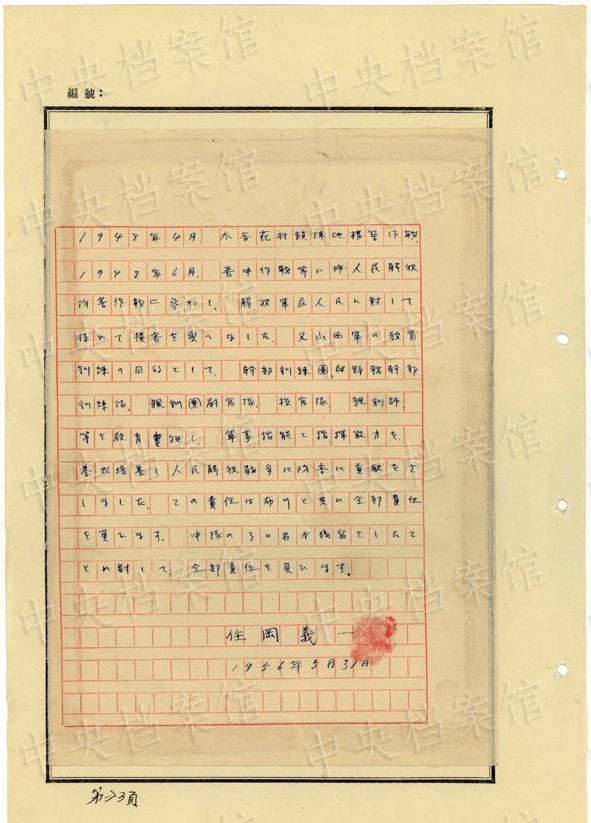 編號：
1948年4月．太谷范村鎮陣地構築作戦．
1948年6月．晋中作戦等に所人民解放
防害作戦に参加し．解放軍及人民に対して
極めて損害を與へました．又山西軍の教育
訓練の目的として．幹部訓練團，野戦幹部
訓練隊．親訓團尉官隊．校官隊　親訓師．
等を教育實施し．軍事指能と指揮能力を．
養成培養し人民解放戦争に防害に貢献をさ
しました．ての責任は布川と共に全部責任
を負ひます．中隊の30名が残留としたて
とに対して．全部責任を負ひます．
住岡義一
1956年5月31日
第23頁
中央档案馆